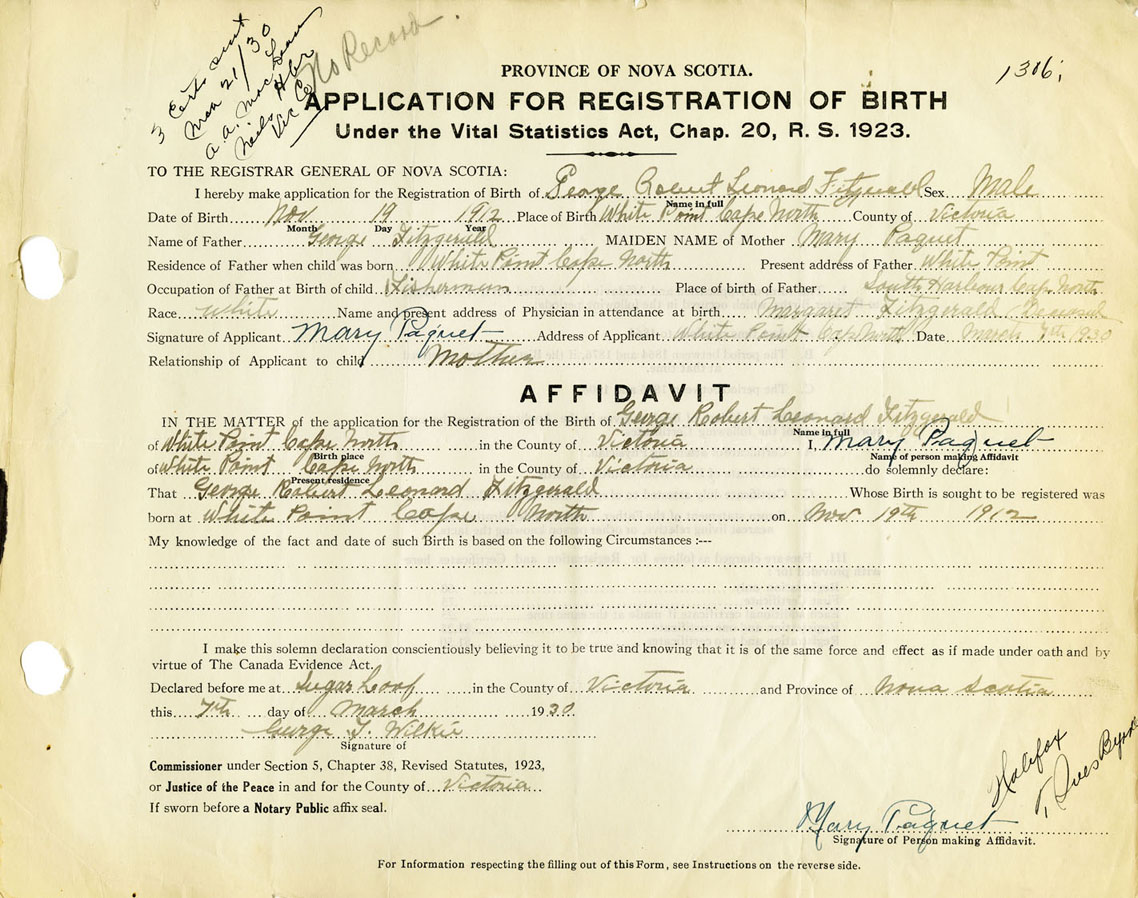 3 Certs sent
Mar 21/30
a. a. MacLean
Neils Hbr
Vic Co
No Record
1306
PROVINCE OF NOVA SCOTIA.
APPLICATION FOR REGISTRATION OF BIRTH
Under the Vital Statistics Act, Chap. 20, R. S. 1923.
TO THE REGISTRAR GENERAL OF NOVA SCOTIA:
I hereby make application for the Registration of Birth of George Robert Leonard Fitzgerald Sex Male
Name in full
Date of Birth Nov 19 1912 Place of Birth White Point Cape North County of Victoria
Month Day Year
Name of Father George Fitzgerald MAIDEN NAME of Mother Mary Paquet
Residence of Father when child was born White Point Cape North Present address of Father White Point
Occupation of Father at Birth of child Fisherman Place of birth of Father South Harbour Cape North
Race White Name and present address of Physician in attendance at birth Margaret Fitzgerald Deceased
Signature of Applicant Mary Paquet Address of Applicant White Point Cape North Date March 7th 1930
Relationship of Applicant to child Mother
AFFIDAVIT
IN THE MATTER of the application for the Registration of the Birth of George Robert Leonard Fitzgerald
Name in full
of White Point Cape North in the County of Victoria I, Mary Paquet
Birth place Name of person making Affidavit
of White Point Cape North in the County of Victoria do solemnly declare:
Present residence
That George Robert Leonard Fitzgerald Whose Birth is sought to be registered was
born at White Point Cape North on Nov 19th 1912
My knowledge of the fact and date of such Birth is based on the following Circumstances :---
I make this solemn declaration conscientiously believing it to be true and knowing that it is of the same force and effect as if made under oath and by
virtue of The Canada Evidence Act.
Declared before me at Sugar Loaf in the County of Victoria and Province of Nova Scotia
this 7th day of March 1930
George T. Wilkie
Signature of
Commissioner under Section 5, Chapter 38, Revised Statutes, 1923,
or Justice of the Peace in and for the County of Victoria
If sworn before a Notary Public affix seal.
Halifax
Mary Paquet
Signature of Person making Affidavit.
For Information respecting the filling out of this Form, see Instructions on the reverse side.